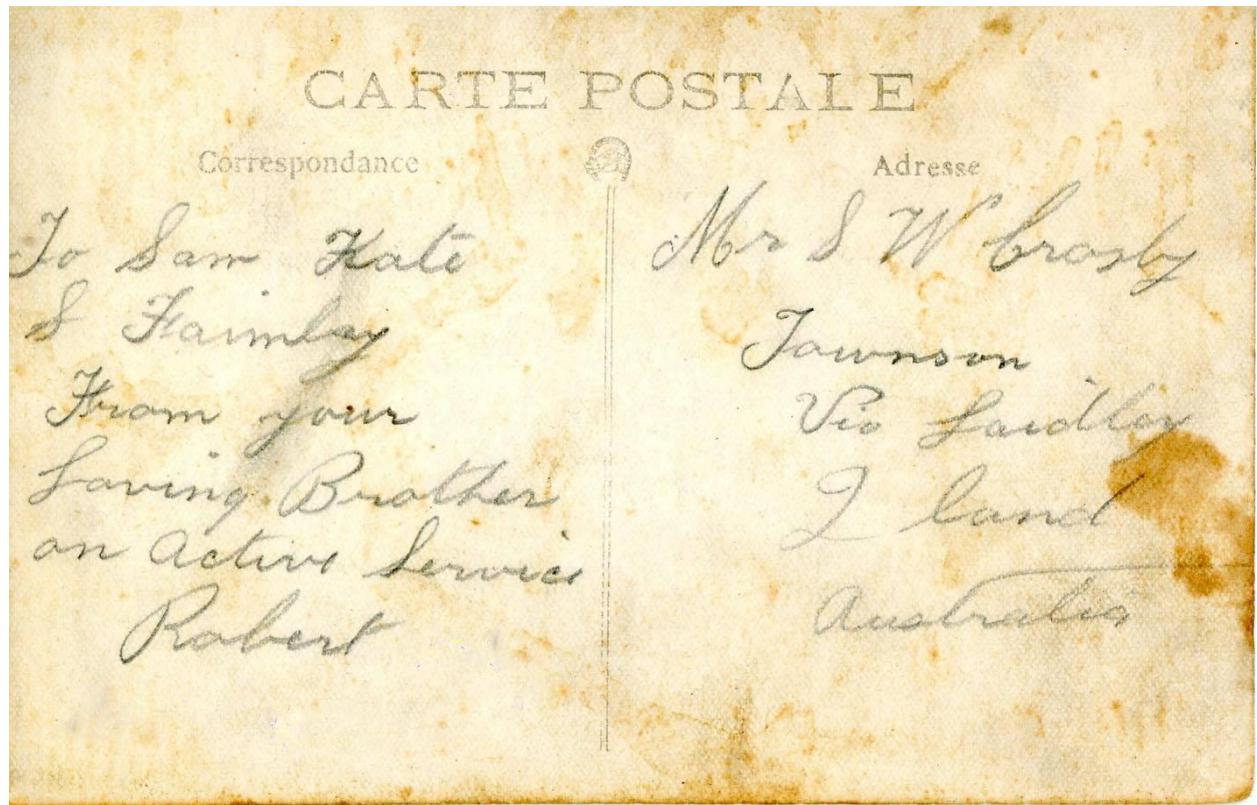 CARTE POSTALE
Correspondance
To Sam Kate
& Faimley
From your
Loving Brother
on Active Service
Robert
Adresse
Mr S W Crosby
Townson
Via Laidley
Q land
Australia